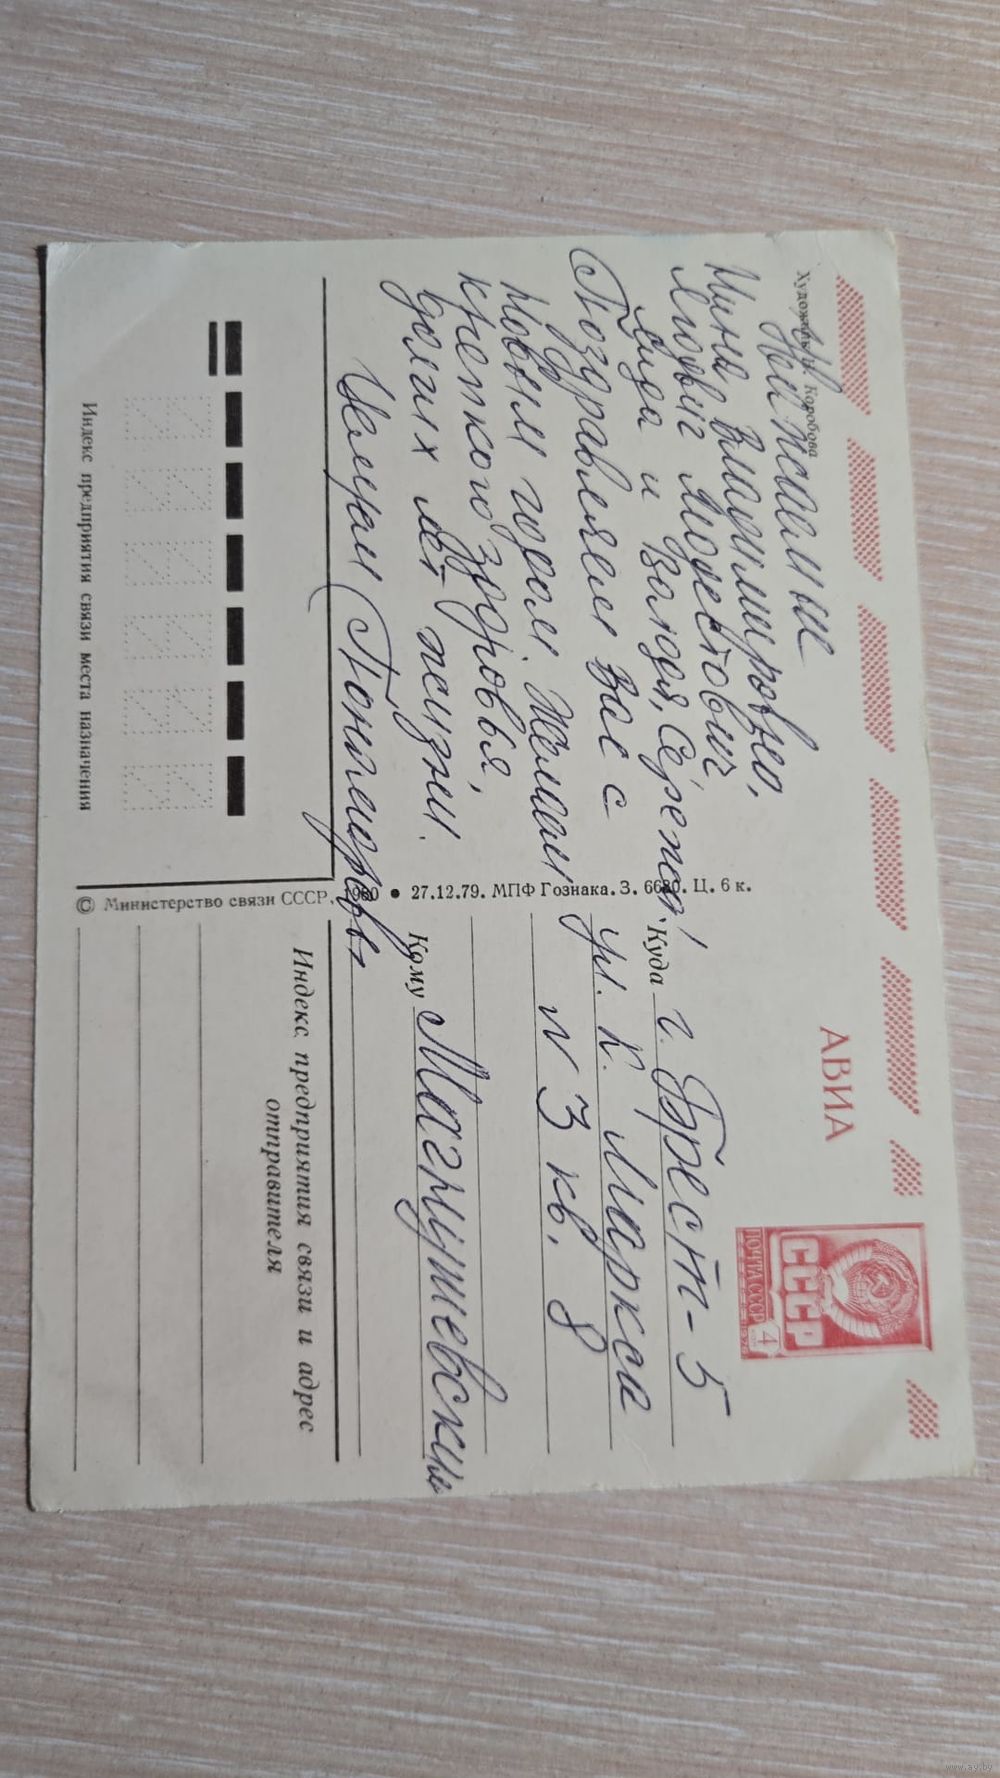 Художник Т. Коробова
Уважаемые
Нина Владимировна,
Людвиг Модестович
Лида и Валюдя, Сережа!
Поздравляем Вас с
Новым годом. Желаем
крепкого здоровья,
долгих лет жизни.
Целуем
Индекс предприятия связи места назначения
© Министерство связи СССР, 1980 • 27.12.79. МПФ Гознака. З. 6680. Ц. 6 к.
АВИА
ПОЧТА СССР 4
СССР
Куда г. Брест-5
ул. К. Маркса
N 3 кв. 8
Кому Магнушевским
Индекс предприятия связи и адрес
отправителя
www.ay.by